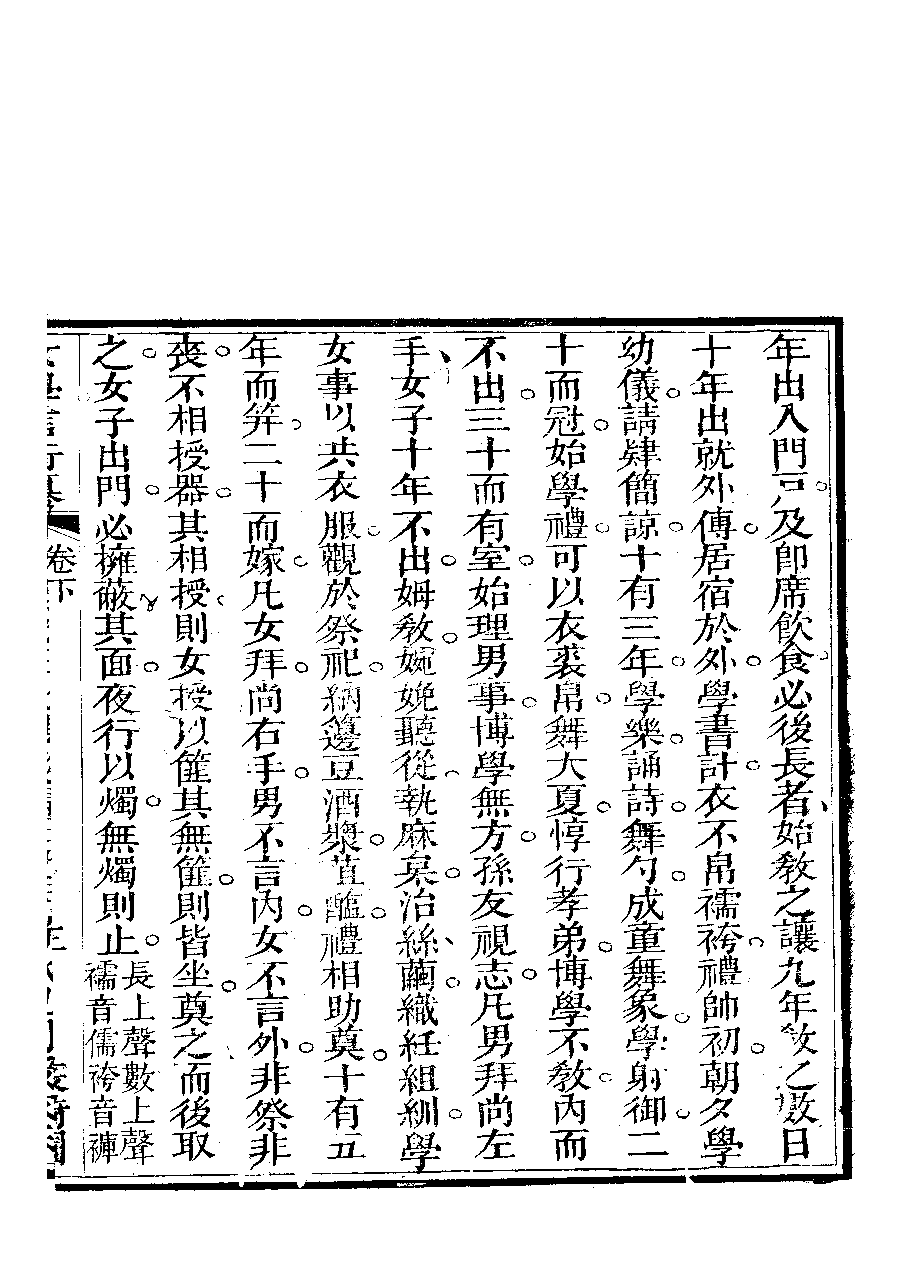 年出入門戸及即席飲食必後長者始敎之讓九年敎之數日
十年出就外傅居宿於外學書計衣不帛襦袴禮帥初朝夕學
幼儀請肄簡諒十有三年學樂誦詩舞勺成童舞象學射御二
十而冠始學禮可以衣裘帛舞大夏惇行孝弟博學不敎內而
不出三十而有室始理男事博學無方孫友視志凡男拜尚左
手女子十年不出姆敎婉娩聽從執麻枲治絲繭織紝組紃學
女事以共衣服觀於祭祀納籩豆酒漿菹醢禮相助奠十有五
年而筓二十而嫁凡女拜尚右手男不言內女不言外非祭非
喪不相授器其相授則女授以篚其無篚則皆坐奠之而後取
之女子出門必擁蔽其面夜行以燭無燭則止
長上聲數上聲
襦音儒袴音褲
卷下